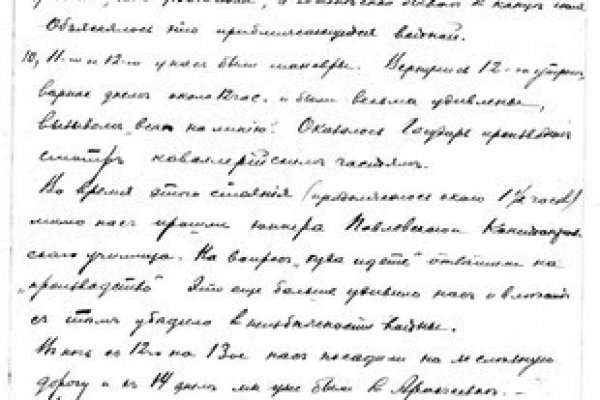 Объяснялось это приближающейся войной.
10, 11-го и 12-го у нас были маневры. Вернулись 12-го утром,
вернее днем около 12 час. и были весьма удивлены,
вызовом „всех на линию“. Оказалось Государь производит
смотр кавалерийским частям.
Во время этого стояния (продолжалось около 1½ часов)
мимо нас прошли юнкера Павловского
ского училища. На вопрос „куда идете“ ответили на
„производство“ Это еще больше удивило нас и
с тем убедило в неизбежности войны.
В ночь с 12-го на 13-ое нас посадили на железную
дорогу и в 14 днем мы уже были в